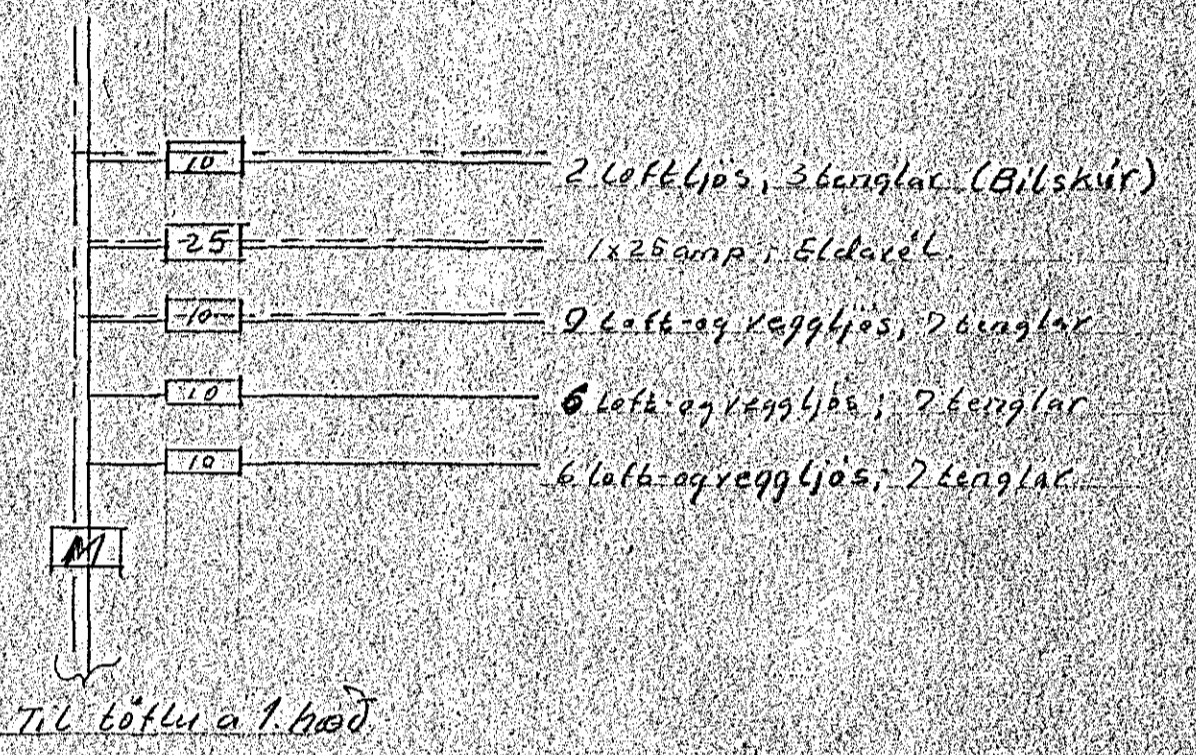 10
2 loftljós, 3 tenglar (Bílskúr)
25
1x25 amp; Eldavél.
10
9 loft-og veggljós, 7 tenglar
10
6 loft-og veggljós; 7 tenglar
10
6 loft-og veggljós; 7 tenglar
M
Til töflu á 1. hæð.